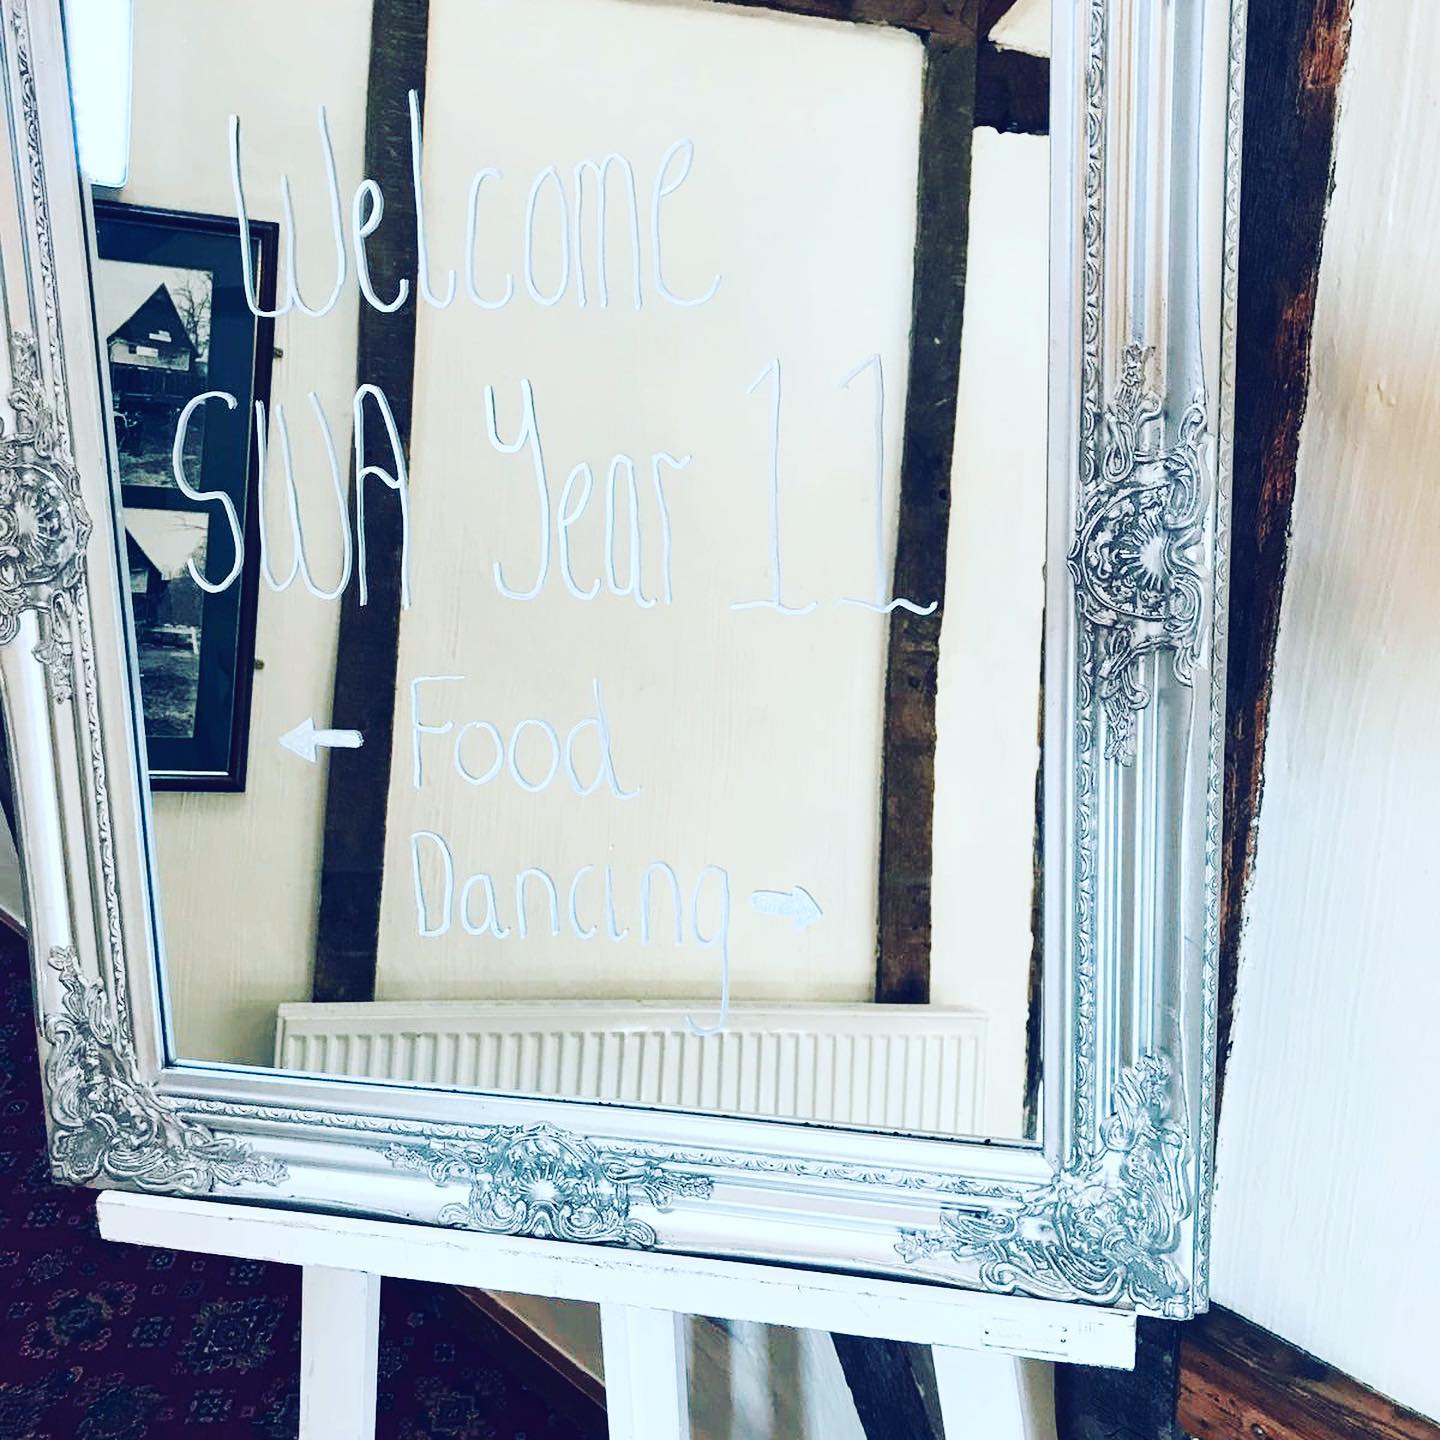 Welcome
SWA Year 11
← Food
Dancing →